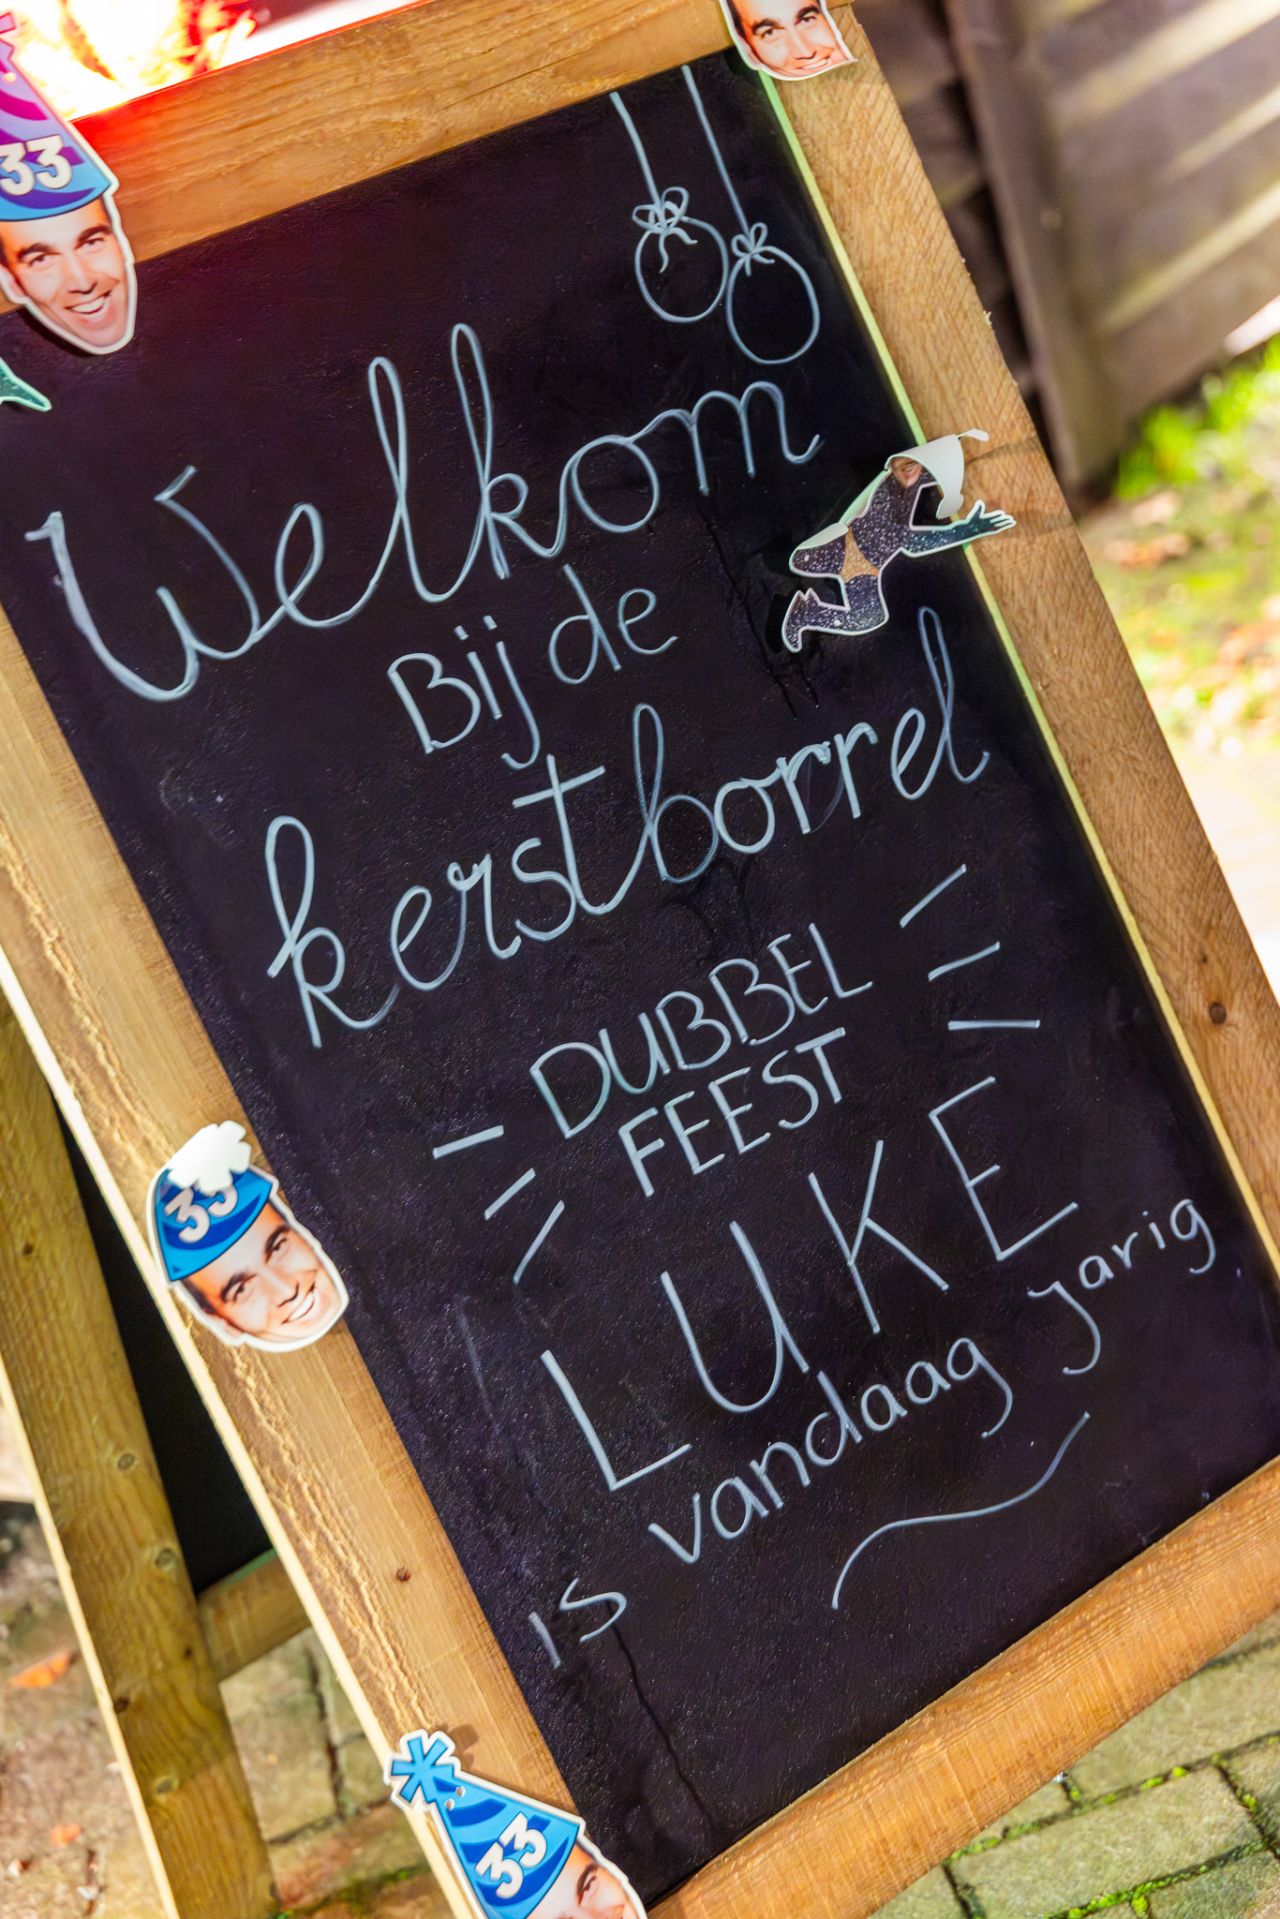 33
Welkom
Bij de
kerstborrel
DUBBEL
FEEST
33
LUKE
is vandaag jarig
33